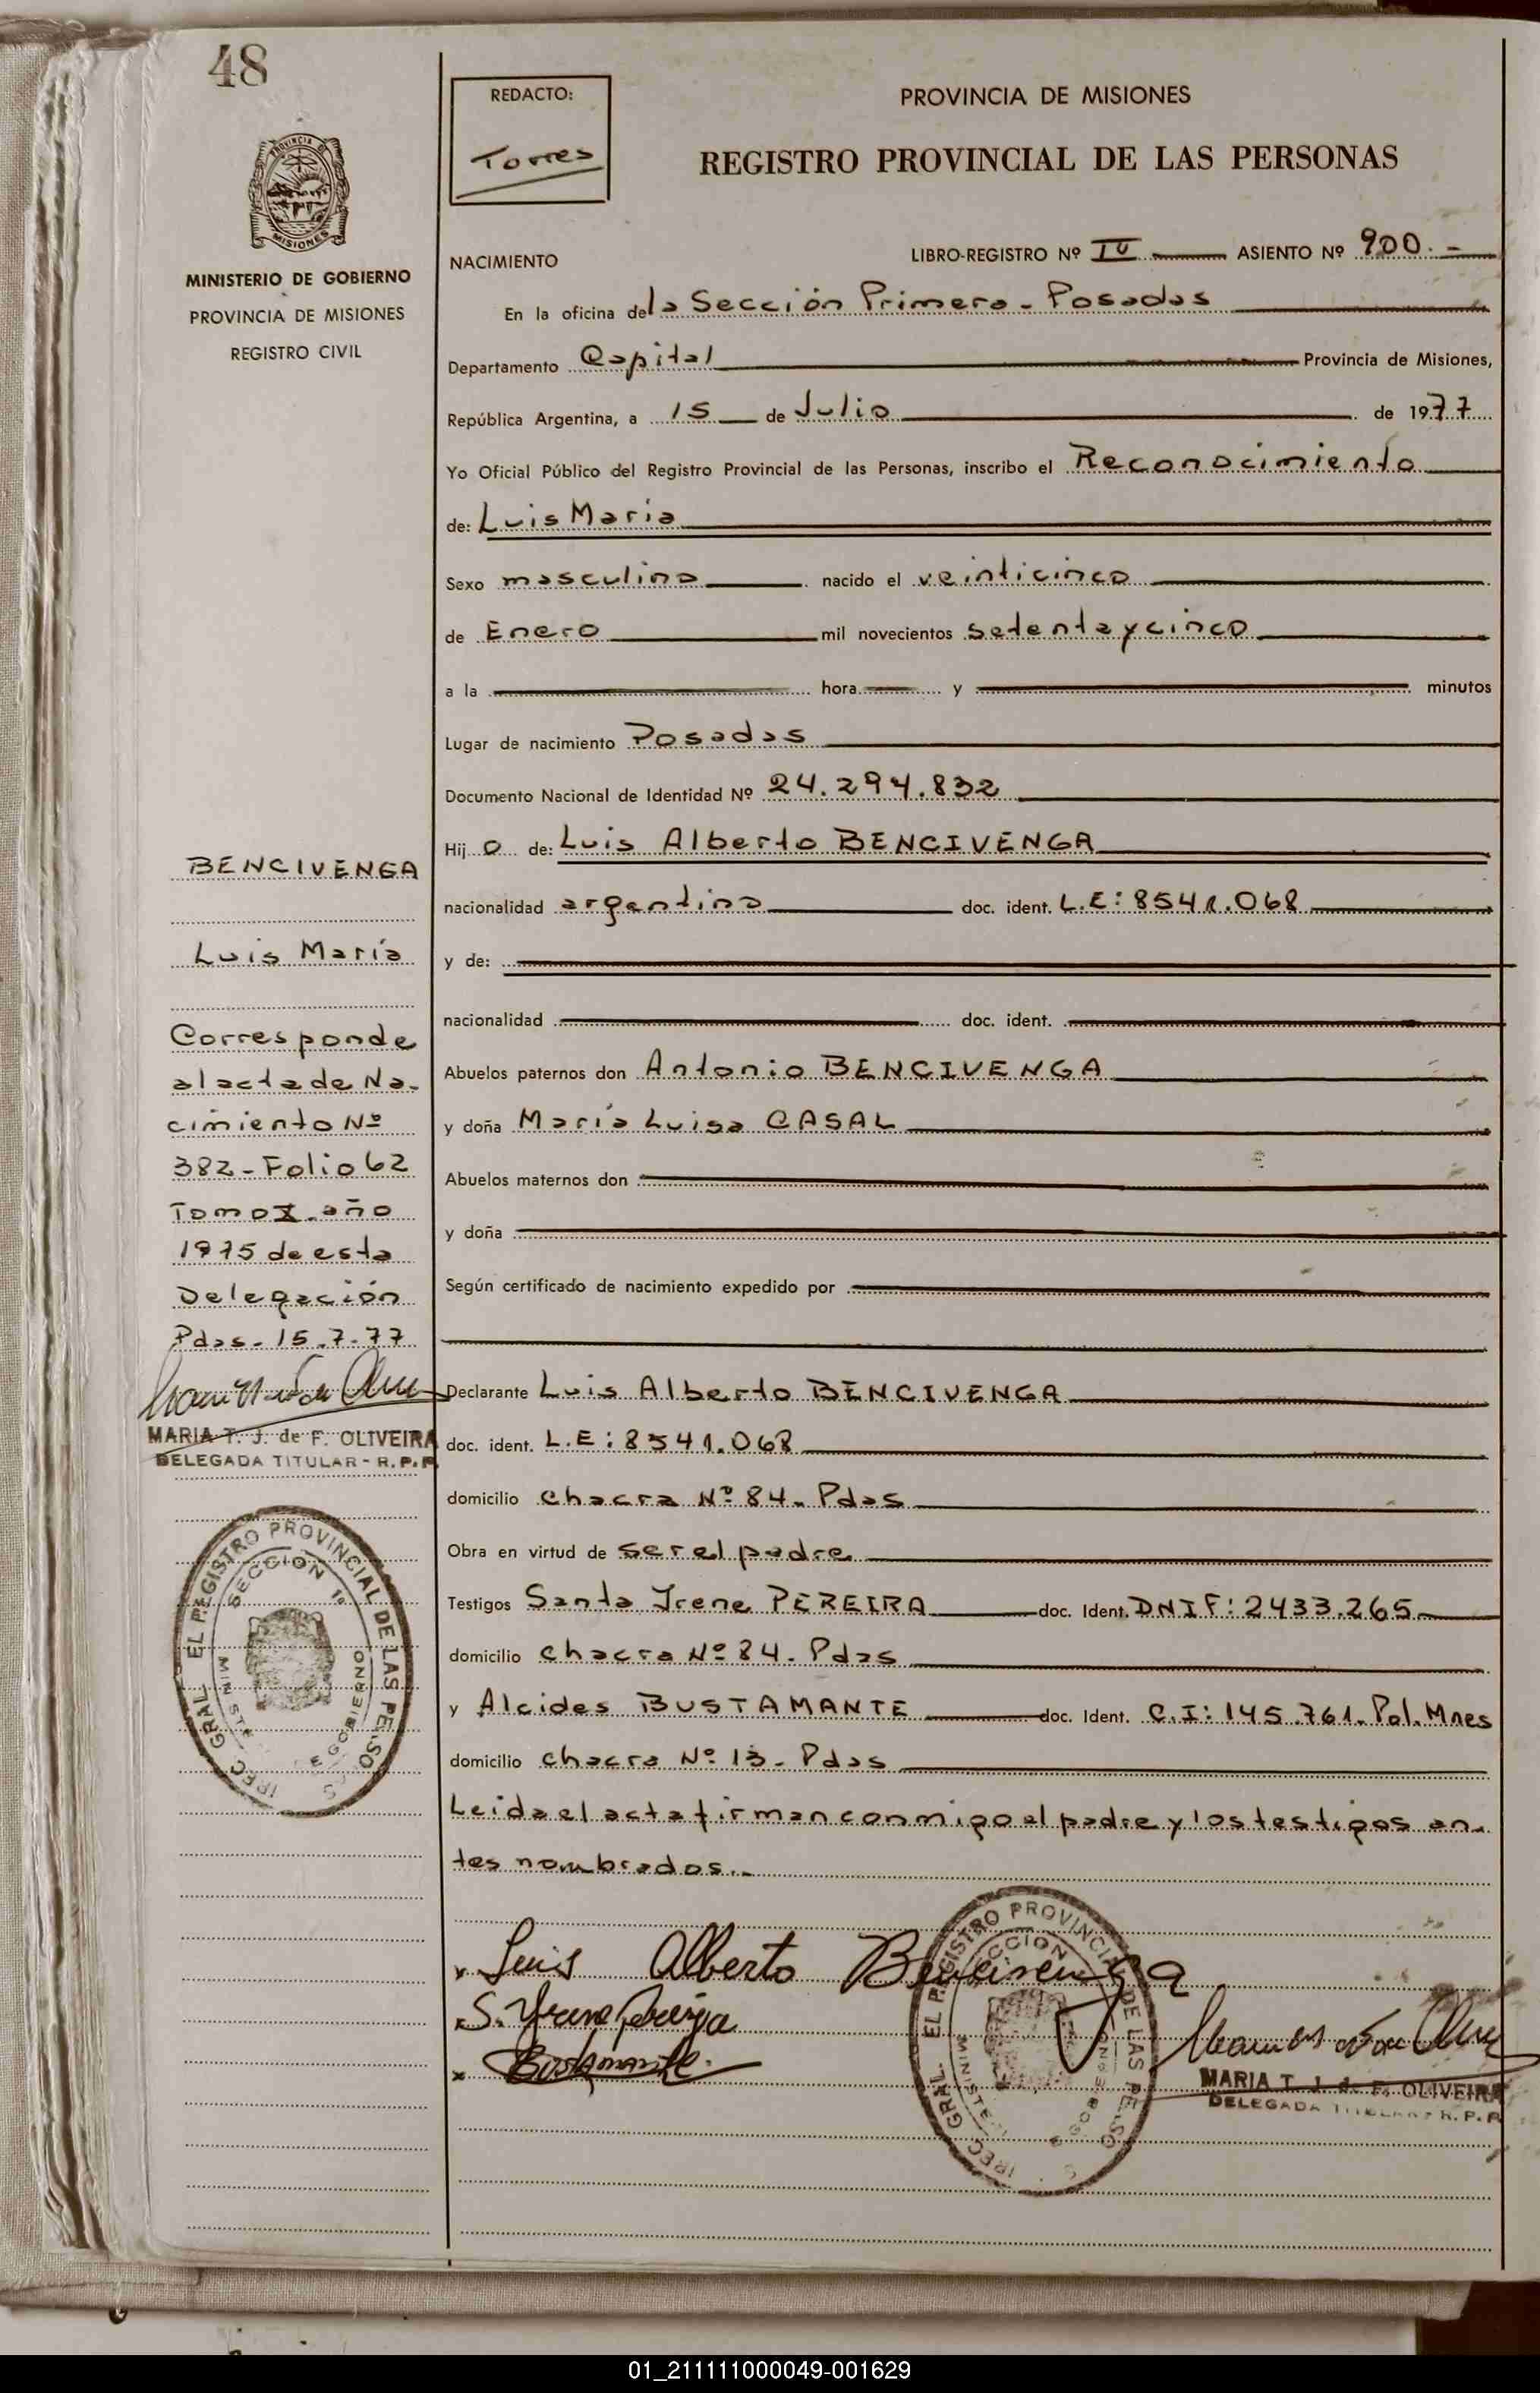 48
REDACTO:
Torres
PROVINCIA DE MISIONES
REGISTRO PROVINCIAL DE LAS PERSONAS
PROVINCIA DE
MISIONES
MINISTERIO DE GOBIERNO
PROVINCIA DE MISIONES
REGISTRO CIVIL
NACIMIENTO
LIBRO-REGISTRO Nº IV ASIENTO Nº 900.-
En la oficina de la Sección Primera - Posadas
Departamento Capital Provincia de Misiones,
República Argentina, a 15 de Julio de 1977
Yo Oficial Público del Registro Provincial de las Personas, inscribo el Reconocimiento
de: Luis María
Sexo masculino nacido el veinticinco
de Enero mil novecientos setenta y cinco
a la hora y minutos
Lugar de nacimiento Posadas
Documento Nacional de Identidad Nº 24.294.832
Hij o de: Luis Alberto BENCIVENGA
nacionalidad argentino doc. ident. L.E: 8541.068
y de:
nacionalidad doc. ident.
Abuelos paternos don Antonio BENCIVENGA
y doña María Luisa CASAL
Abuelos maternos don
y doña
Según certificado de nacimiento expedido por
Declarante Luis Alberto BENCIVENGA
doc. ident. L.E: 8541.068
domicilio chacra Nº 84. Pdas
Obra en virtud de ser el padre
Testigos Santa Irene PEREIRA doc. Ident. DNIF: 2433.265
domicilio chacra Nº 84. Pdas
y Alcides BUSTAMANTE doc. Ident. C.I: 145.761. Pol. Mnes
domicilio chacra Nº 13 - Pdas
Leida el acta firman conmigo el padre y los testigos an-
tes nombrados.-
BENCIVENGA
Luis María
Corresponde
al acta de Na-
cimiento Nº
382 - Folio 62
Tomo X año
1975 de esta
Delegación
Pdas - 15.7.77
MARIA T. J. de F. OLIVEIRA
DELEGADA TITULAR - R. P. P.
REGISTRO PROVINCIAL DE LAS
SECCION 1ª
GOBIERNO
Luis Alberto Bencivenga
S. Irene Pereira
Bustamante
REGISTRO PROVINCIAL DE LAS
SECCION
MARIA T. J. de F. OLIVEIRA
DELEGADA TITULAR - R. P. P.
01_211111000049-001629